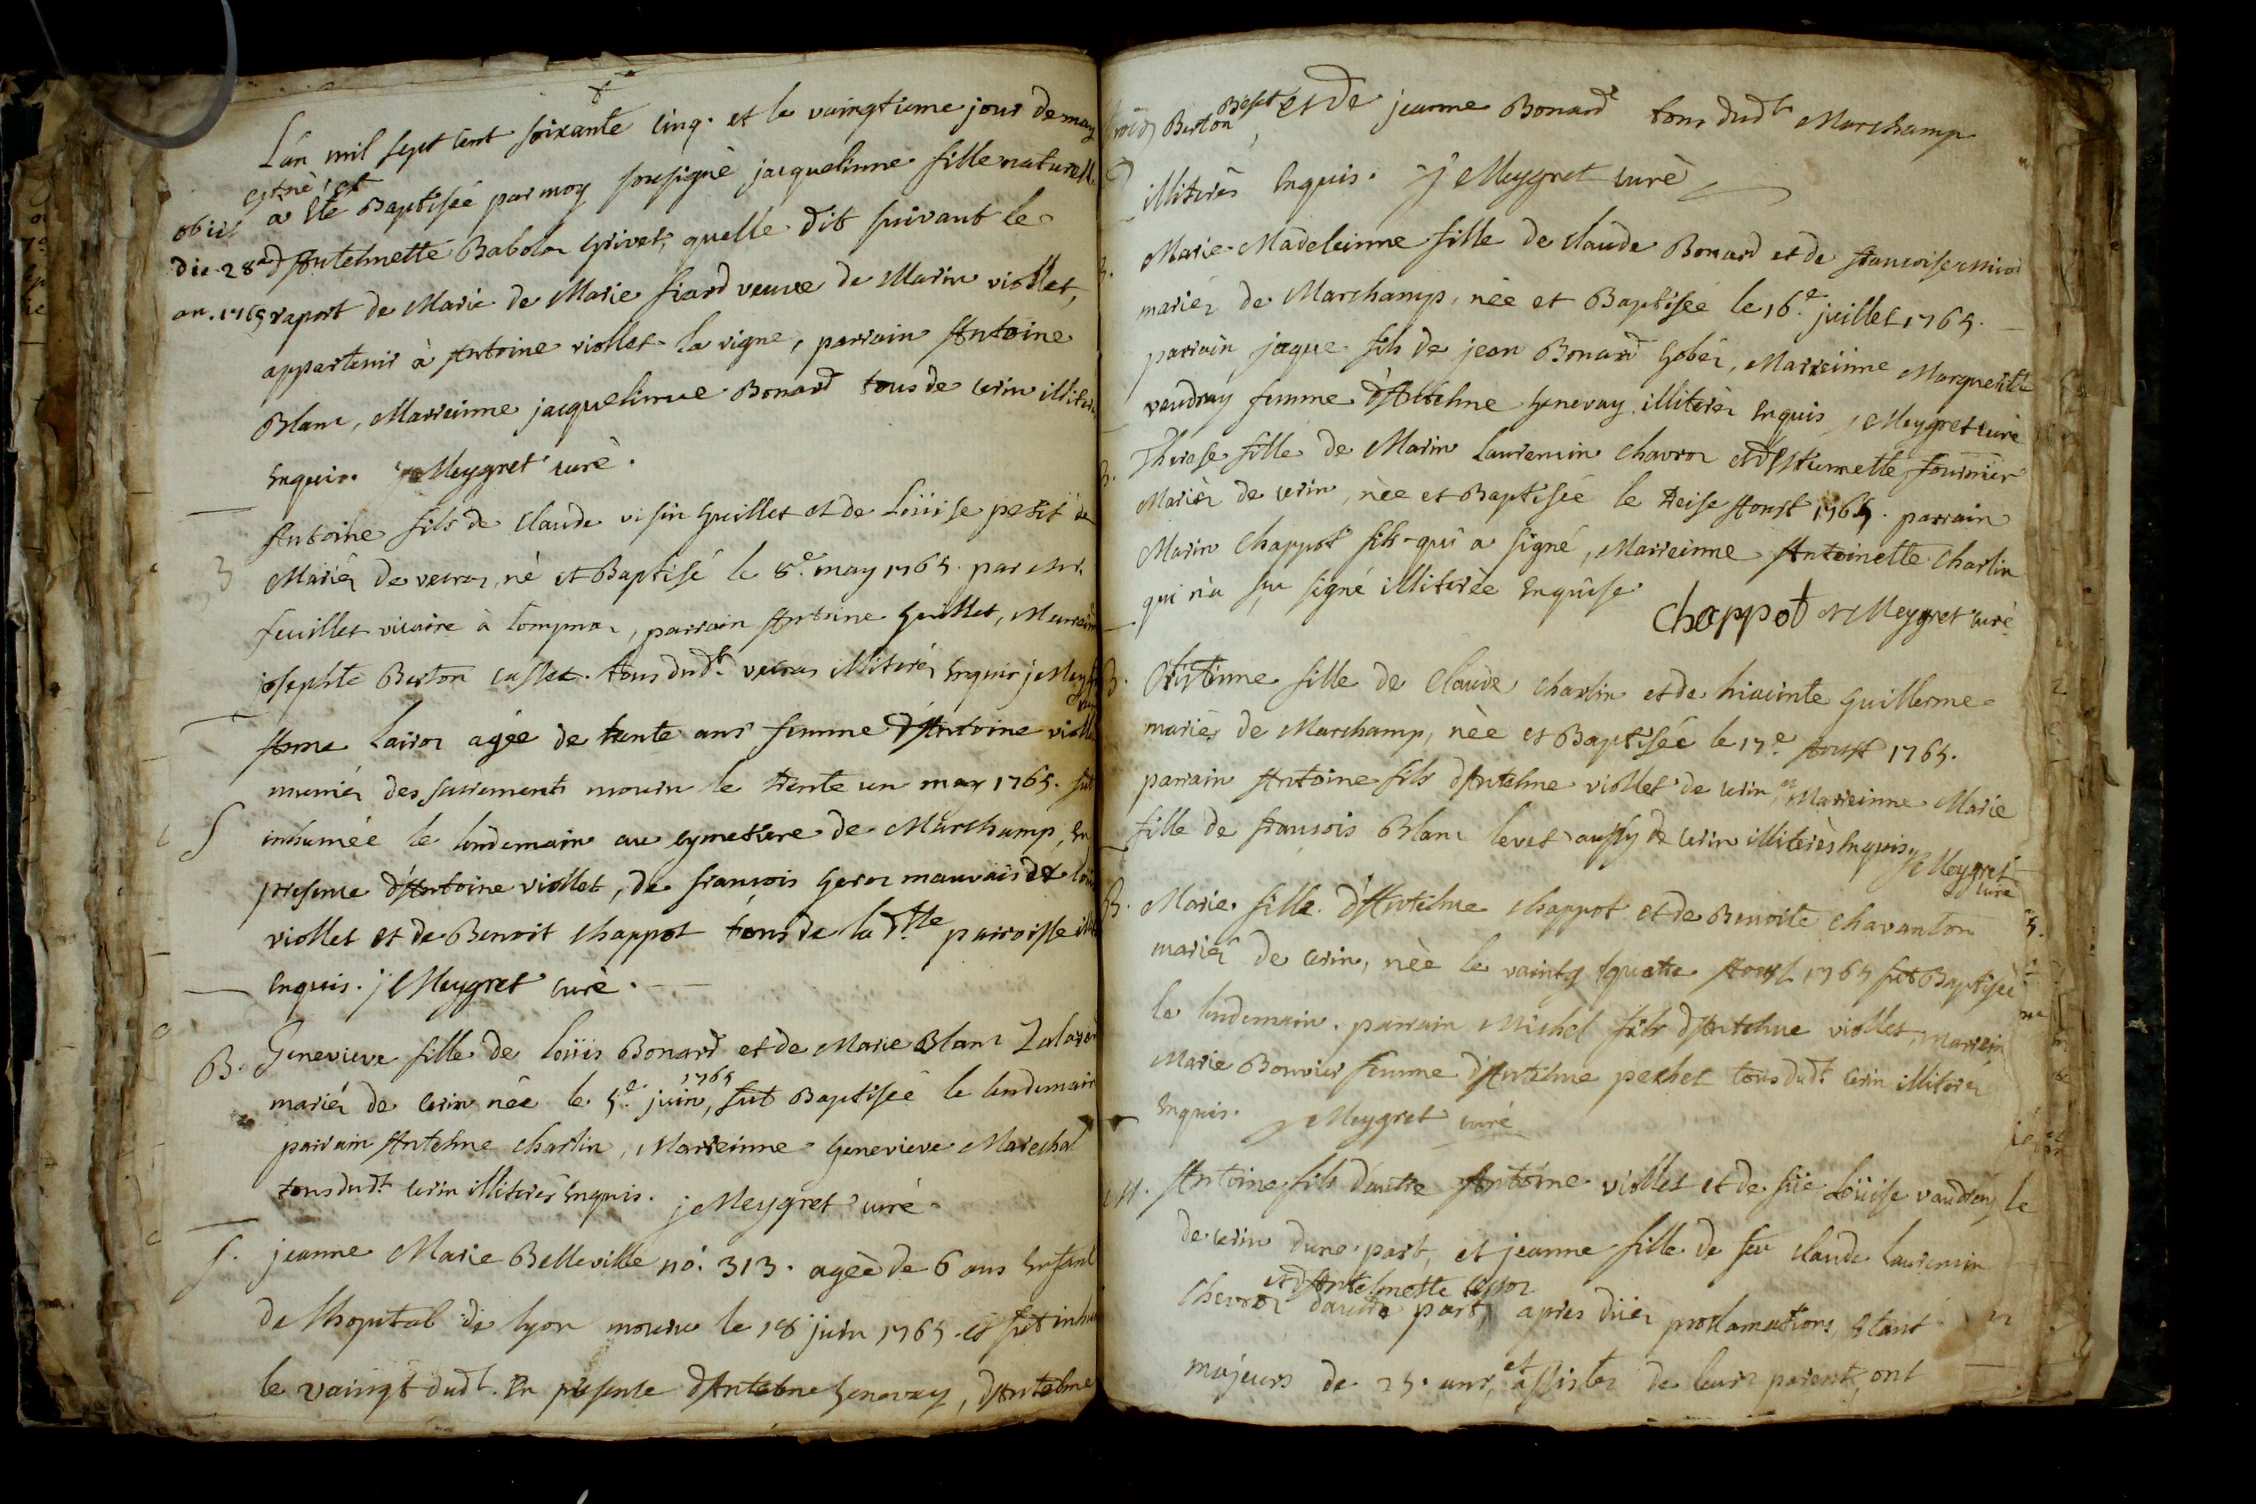 L'an mil sept cent soixante cinq. et le vaingtieme jour de may
est nèe et
a Eté Baptisée par moy sousigné jacquelinne fille naturelle
obiit
die 28a d'Antelmette Babolar Grivet, quelle dit suivant le
an. 1765 raport de Marie de Marie fiard veuve de Marin viollet,
appartenir à Antoine viollet la vigne, parrain Antoine
Blanc, Marreinne jacquelinne Bonard tous de cerin illiterés
Enquis. j Meygret curè.
Antoine fils de Claude visin Guillet et de Loüise petit de
3 Mariés de veiras, nè et Baptisé le 8e. may 1765. par Mr.
feuillet vicaire à lompnas, parrain Antoine Guillet, Marreine
josephte Berton tous dudt. veiras illiterés Enquis j Meygret
curé
Anne Lairoz agée de trente ans femme d'Antoine viollet
munie des sacrements mouru le trente un may 1765. fut
S inhumée le lendemain au cymetiere de Marchamp, En
presence d'Antoine viollet, de françois Geroz mauvais de loüis
viollet et de Benoit Chappot tous de la dtte parroisse
Enquis. j Meygret curè.
B. Genevieve fille de Loüis Bonard et de Marie Blanc
1765
mariés de cerin née le 5e. juin, fut Baptisée le lendemain
parrain Antelme Charlin, Marreinne Genevieve Marechal
tous dudt. cerin illiterés Enquis. j Meygret curé
S. jeanne Marie Belleville no. 313. agèe de 6 ans Enfant
de lhopital de lyon mouru le 18 juin 1765. et fut inhumée
le vaingt dudt. En presence d'Antelme Genevay, d'Antelme
Berton et de jeanne Bonard tous dudt. Marchamp
illiterés Enquis. j Meygret curè
B. Marie-Madeleinne fille de claude Bonard et de françoise
mariés de Marchamp, nèe et Baptisée le 16e. juillet 1765.
parrain jaque fils de jean Bonard Gobéz, Marreinne Marguerite
vaudray femme d'Antelme Genevay illiterés Enquis j Meygret curé
B. Therese fille de Marin Laurencin Chavroz et d'Etiennette fournier
Mariés de cerin, nèe et Baptisée le treise Aoust 1765. parrain
Marin Chappot fils qui a signé, Marreinne Antoinette Charlin
qui n'a sçu signé illiterèe Enquise
Chappot et Meygret curé
B. Cristinne fille de Claude Charlin et de hiacinte Guillerme
mariés de Marchamp, nèe et Baptisée le 17e. Aoust 1765.
parrain Antoine fils d'Antelme viollet de cerin, et Marreinne Marie
fille de françois Blanc levet aussy de cerin illiterès Enquis j Meygret
curé
B. Marie fille d'Antelme Chappot et de Benoite Chavanton
mariés de cerin, nèe le vaingt quatre Aoust 1765 fut Baptisée
le lendemain. parrain Michel fils d'Antelme viollet, Marrein
Marie Bouvier femme d'Antelme pechet tous dudt. cerin illiterés
Enquis. j Meygret curé
M. Antoine fils d'autre Antoine viollet et de füe Loüise vaudray
de cerin dune part, et jeanne fille de feu claude Laurencin
et d'Antelmette
Chevroz dautre part, apres dües proklamations, Etant
majeurs de 25. ans, et assistés de leurs parents, ont